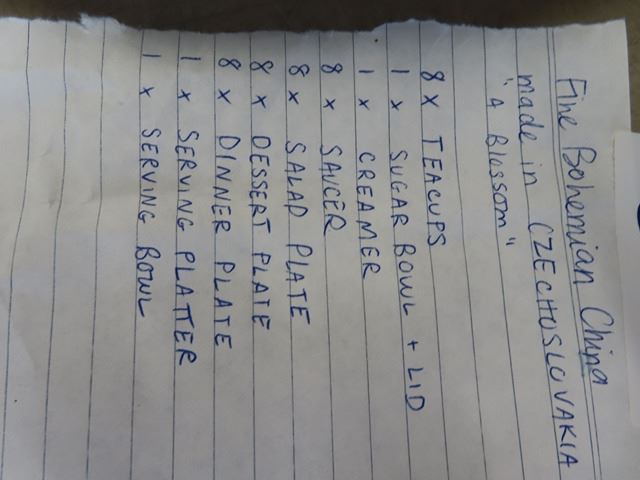 Fine Bohemian China
made in CZECHOSLOVAKIA
"A Blossom"
8 x TEACUPS
1 x SUGAR BOWL + LID
1 x CREAMER
8 x SAUCER
8 x SALAD PLATE
8 x DESSERT PLATE
8 x DINNER PLATE
1 x SERVING PLATTER
1 x SERVING BOWL